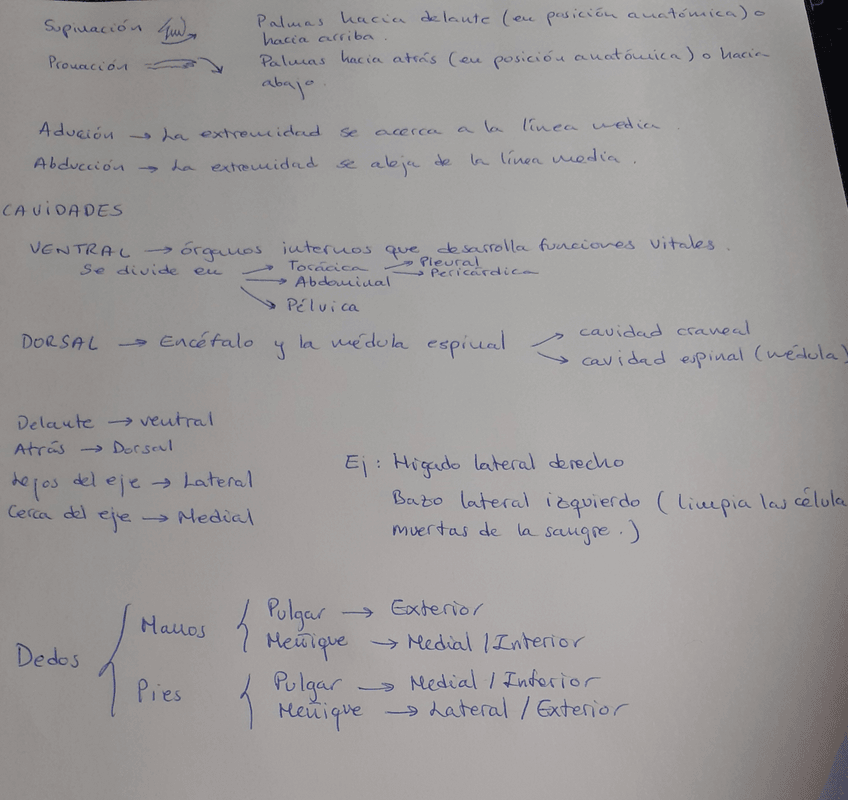 Supinación Palmas hacia delante (en posición anatómica) o
hacia arriba.
Pronación Palmas hacia atrás (en posición anatómica) o hacia
abajo.
Adución → La extremidad se acerca a la línea media.
Abducción → La extremidad se aleja de la línea media.
CAVIDADES
VENTRAL → órganos internos que desarrolla funciones vitales.
Se divide en → Torácica → Pleural
→ Pericárdica
→ Abdominal
→ Pélvica
DORSAL → Encéfalo y la médula espinal → cavidad craneal
→ cavidad espinal (médula)
Delante → ventral
Atrás → Dorsal
Lejos del eje → Lateral
Cerca del eje → Medial
Ej: Hígado lateral derecho
Bazo lateral izquierdo (limpia las célula
muertas de la sangre.)
Dedos
Manos
Pulgar → Exterior
Meñique → Medial / Interior
Pies
Pulgar → Medial / Interior
Meñique → Lateral / Exterior